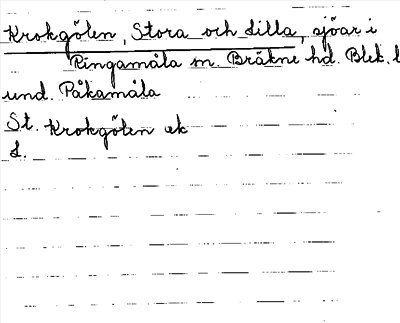 Krokgölen, Stora och Lilla, sjöar i
Ringamåla sn. Bräkne hd. Blek. l
und. Påkamåla
St. Krokgölen ek
L.